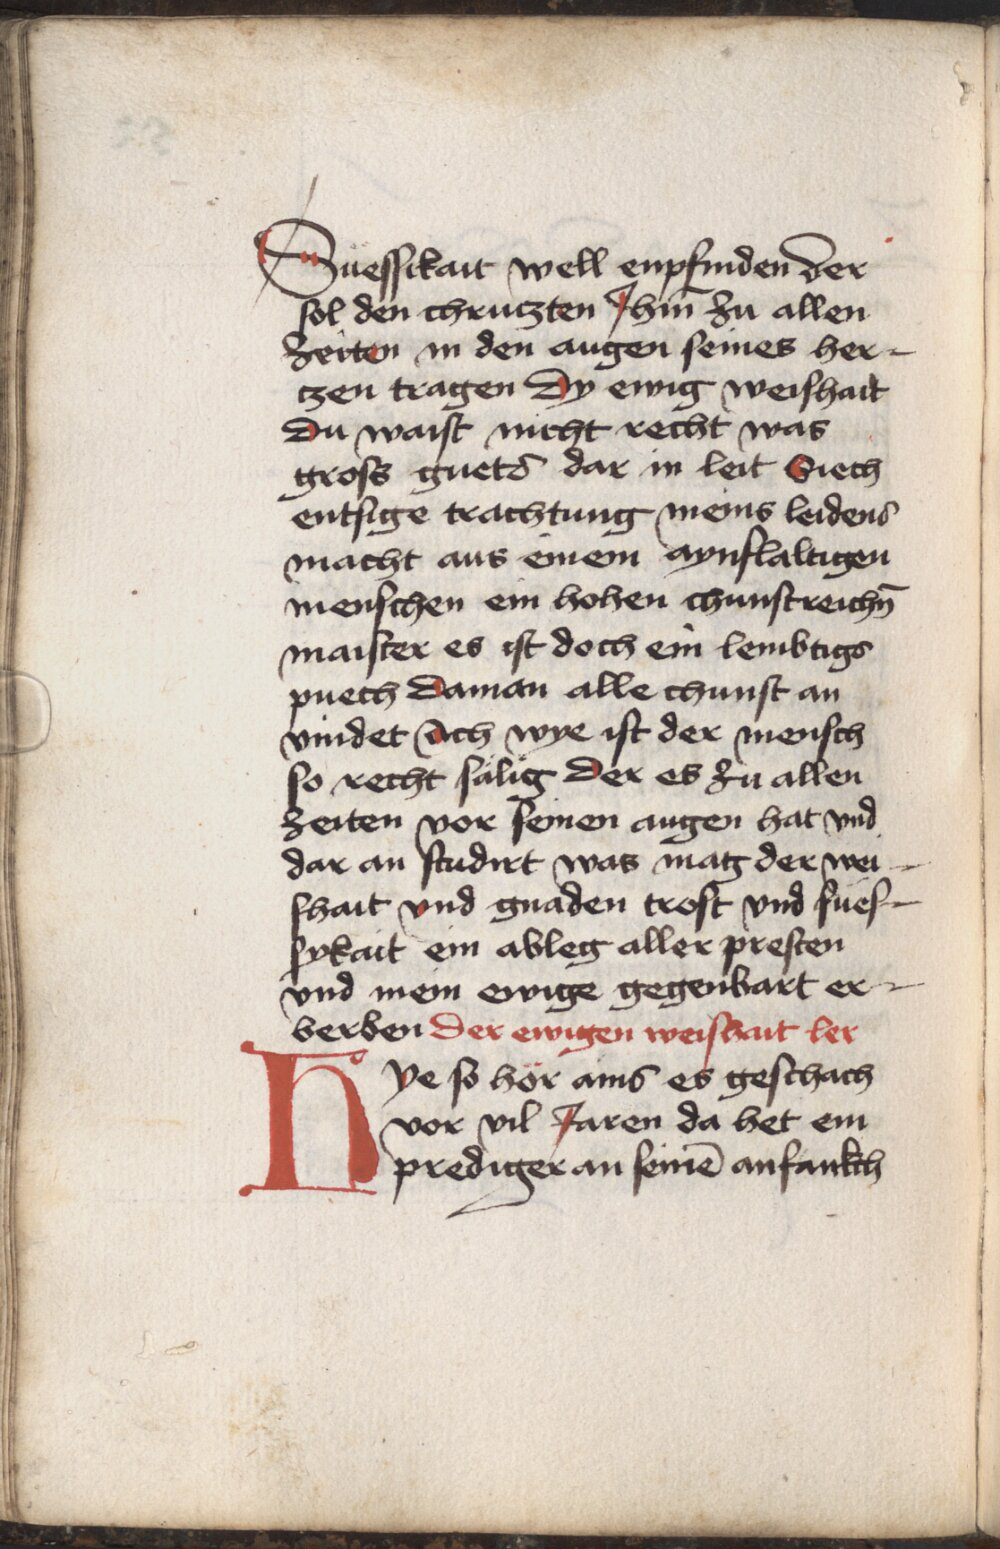 Süessikait well enpfinden Der
sol den chruczten Jhm̄ zu allen
Zeiten in den augen seines her-
czen tragen Dy ewig weishait
Du waist nicht recht was
gross guets dar in leit Siech
entsige trachtung meins leidens
macht aus einem aynflaltigen
menschen ein hohen chunstreichn̄
maister es ist doch ein lembtigs
puech Daman alle chunst an
vindet Ach wye ist der mensch
so recht sälig Der es zu allen
Zeiten vor seinen augen hat vnd
dar an studirt was mag der wei-
shait vnd gnaden trost vnd sües-
sykait ein ableg aller presten
vnd mein ewige gegenbart er-
berben Der ewigen weishait ler
Hye so hör ains es geschach
vor vil Jaren da het ein
prediger an seinē anfankch